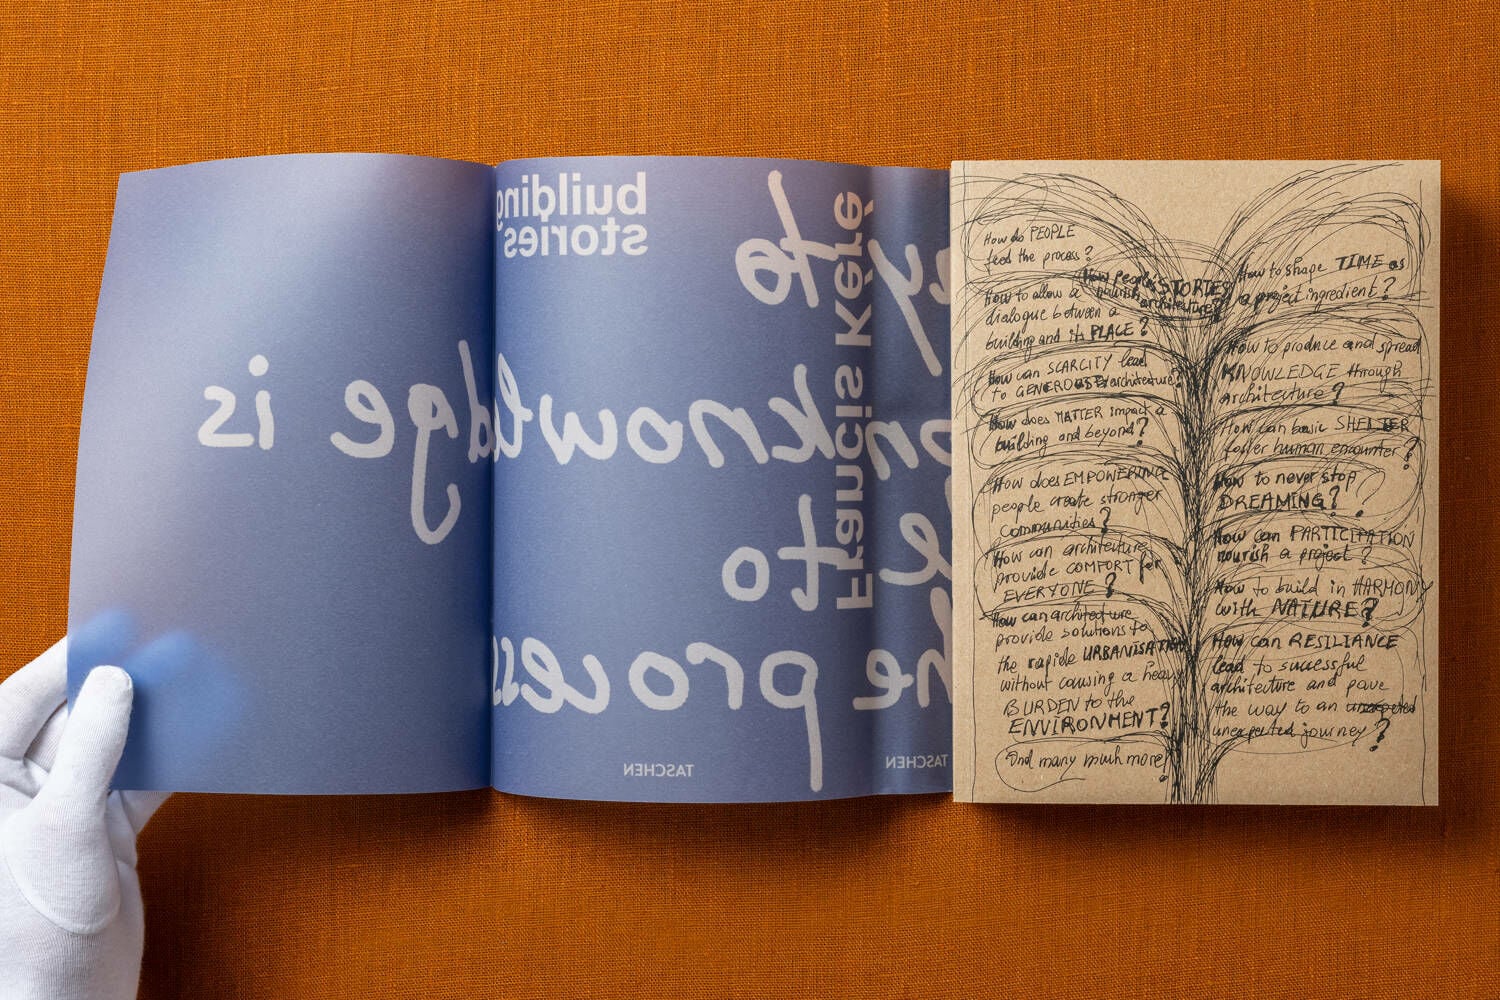 building
stories
Francis Kéré
to
knowledge is
to
he process
TASCHEN
TASCHEN
How do PEOPLE
feed the process?
How people's STORIES
nourish architecture?
How to allow a
dialogue between a
building and its PLACE?
How can SCARCITY lead
to GENEROUS architecture?
How does MATTER impact a
building and beyond?
How does EMPOWERING
people create stronger
communities?
How can architecture
provide COMFORT for
EVERYONE?
How can architecture
provide solutions to
the rapide URBANISATION
without causing a heavy
BURDEN to the
ENVIRONMENT?
And many much more!
How to shape TIME as
a project ingredient?
How to produce and spread
KNOWLEDGE through
architecture?
How can basic SHELTER
foster human encounter?
How to never stop
DREAMING?
How can PARTICIPATION
nourish a project?
How to build in HARMONY
with NATURE?
How can RESILIANCE
lead to successful
architecture and pave
the way to an unexpected
unexpected journey?